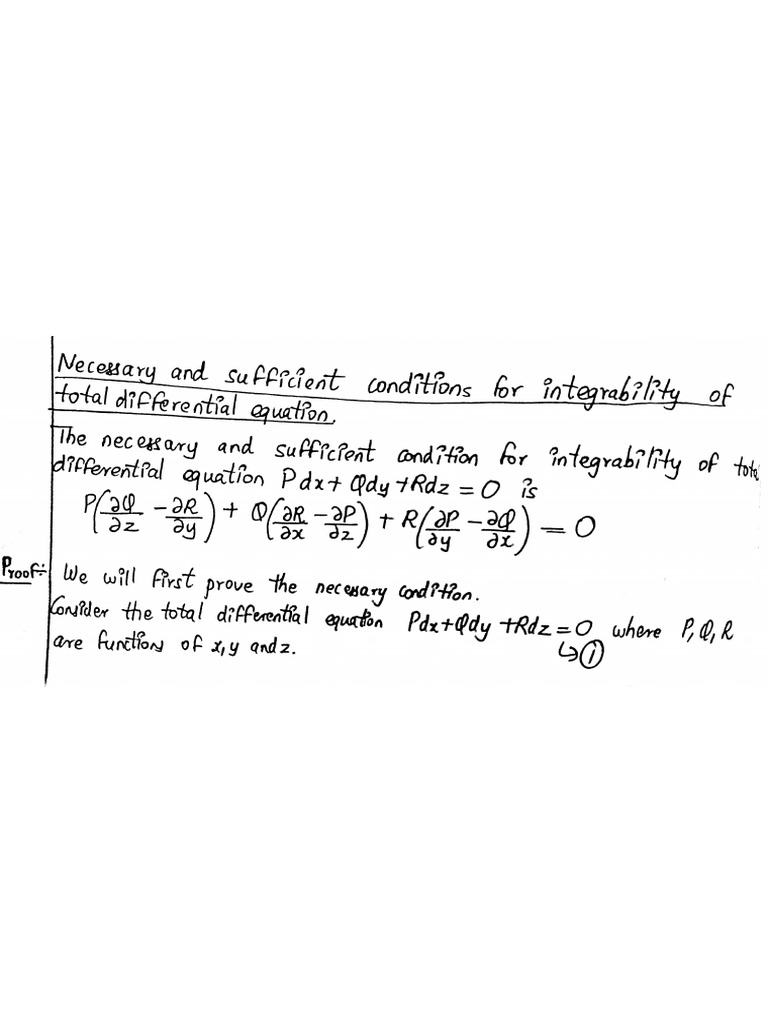 Necessary and sufficient conditions for integrability of
total differential equation.
The necessary and sufficient condition for integrability of total
differential equation Pdx+ Qdy +Rdz = 0 is
P(∂Q/∂z - ∂R/∂y) + Q(∂R/∂x - ∂P/∂z) + R(∂P/∂y - ∂Q/∂x) = 0
Proof:- We will first prove the necessary condition.
Consider the total differential equation Pdx+Qdy +Rdz = 0 where P, Q, R
↳①
are functions of x, y and z.